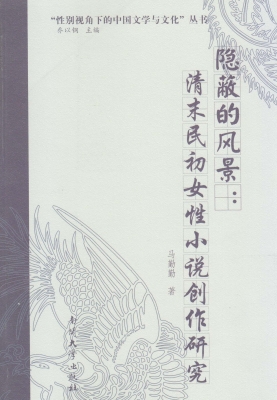 “性别视角下的中国文学与文化”丛书
乔以钢 主编
隐蔽的风景：
清末民初女性小说创作研究
马勤勤 著
南开大学出版社